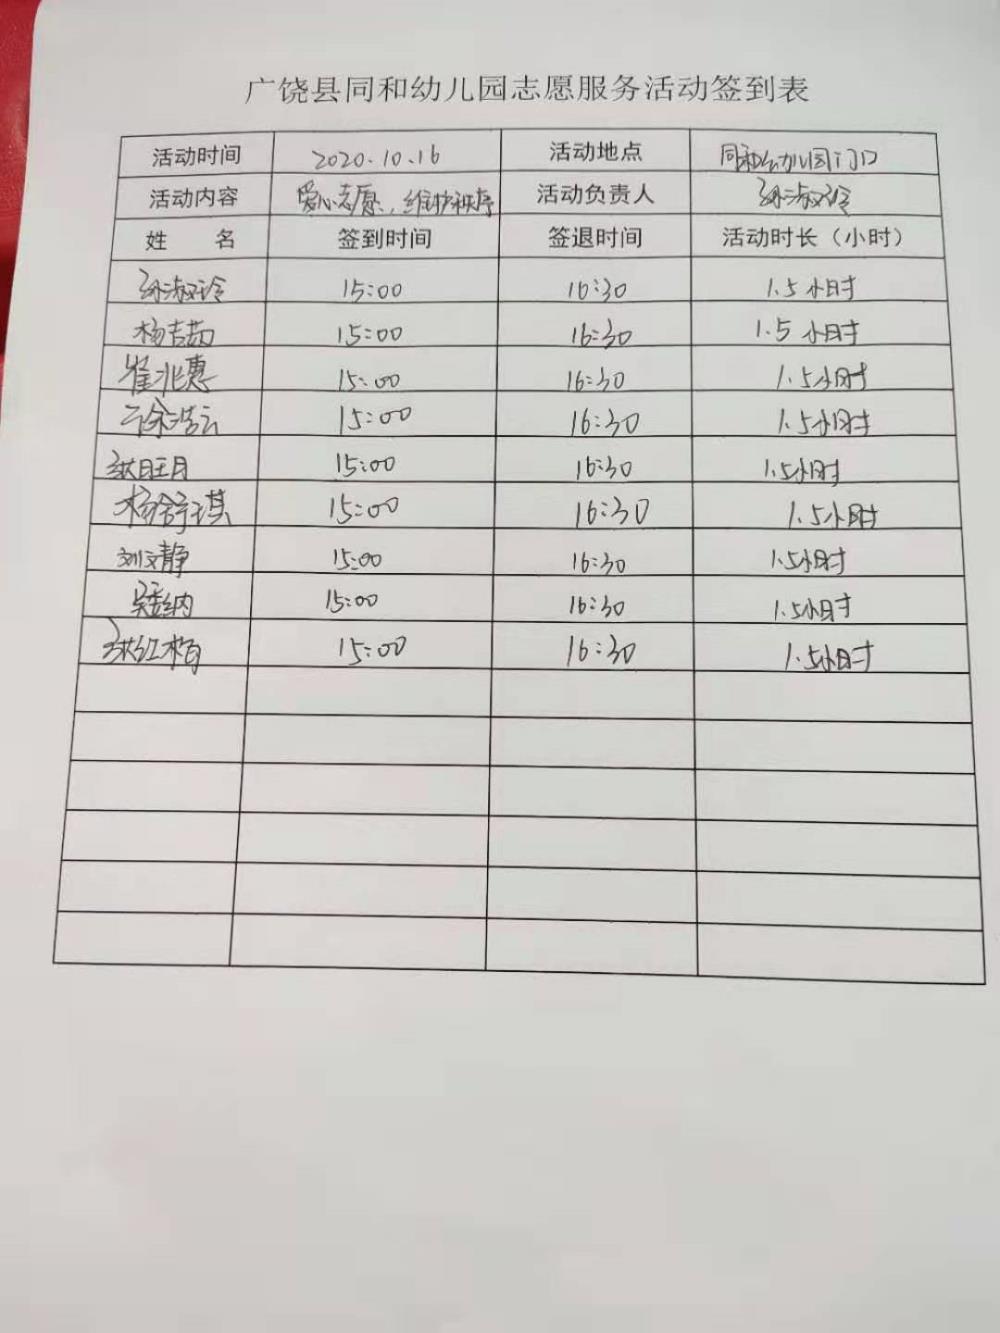 广饶县同和幼儿园志愿服务活动签到表
活动时间 2020.10.16 活动地点 同和幼儿园门口
活动内容 爱心志愿，维护秩序 活动负责人 孙淑玲
姓 名 签到时间 签退时间 活动时长（小时）
孙淑玲 15:00 16:30 1.5小时
杨吉茹 15:00 16:30 1.5小时
崔兆惠 15:00 16:30 1.5小时
徐浩云 15:00 16:30 1.5小时
15:00 16:30 1.5小时
杨舒琪 15:00 16:30 1.5小时
刘文静 15:00 16:30 1.5小时
15:00 16:30 1.5小时
15:00 16:30 1.5小时